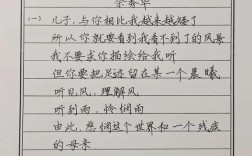 余秀华
(一) 儿子，与你相比我越来越矮了
所以你就要看到我看不到了的风景
我不要求你描绘给我听
但你要把足迹留在某一个晨曦
听见风，理解风
听到雨，怜悯雨
由此，悲悯这个世界和一个残疾
的母亲